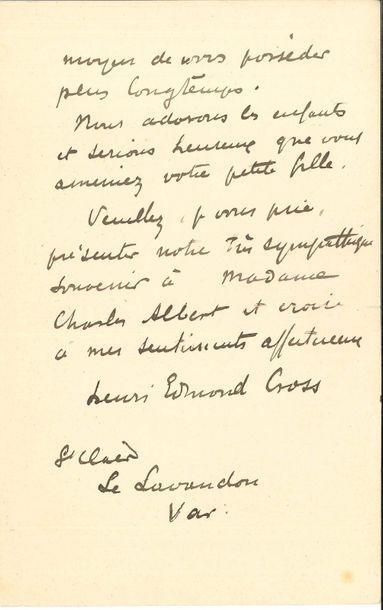 moyen de vous posséder
plus longtemps.
Nous adorons les enfants
et serions heureux que vous
ameniez votre petite fille.
Veuillez, je vous prie,
présenter notre très sympathique
souvenir à Madame
Charles Albert et croire
à mes sentiments affectueux
Henri Edmond Cross
St Clair
Le Lavandou
Var.